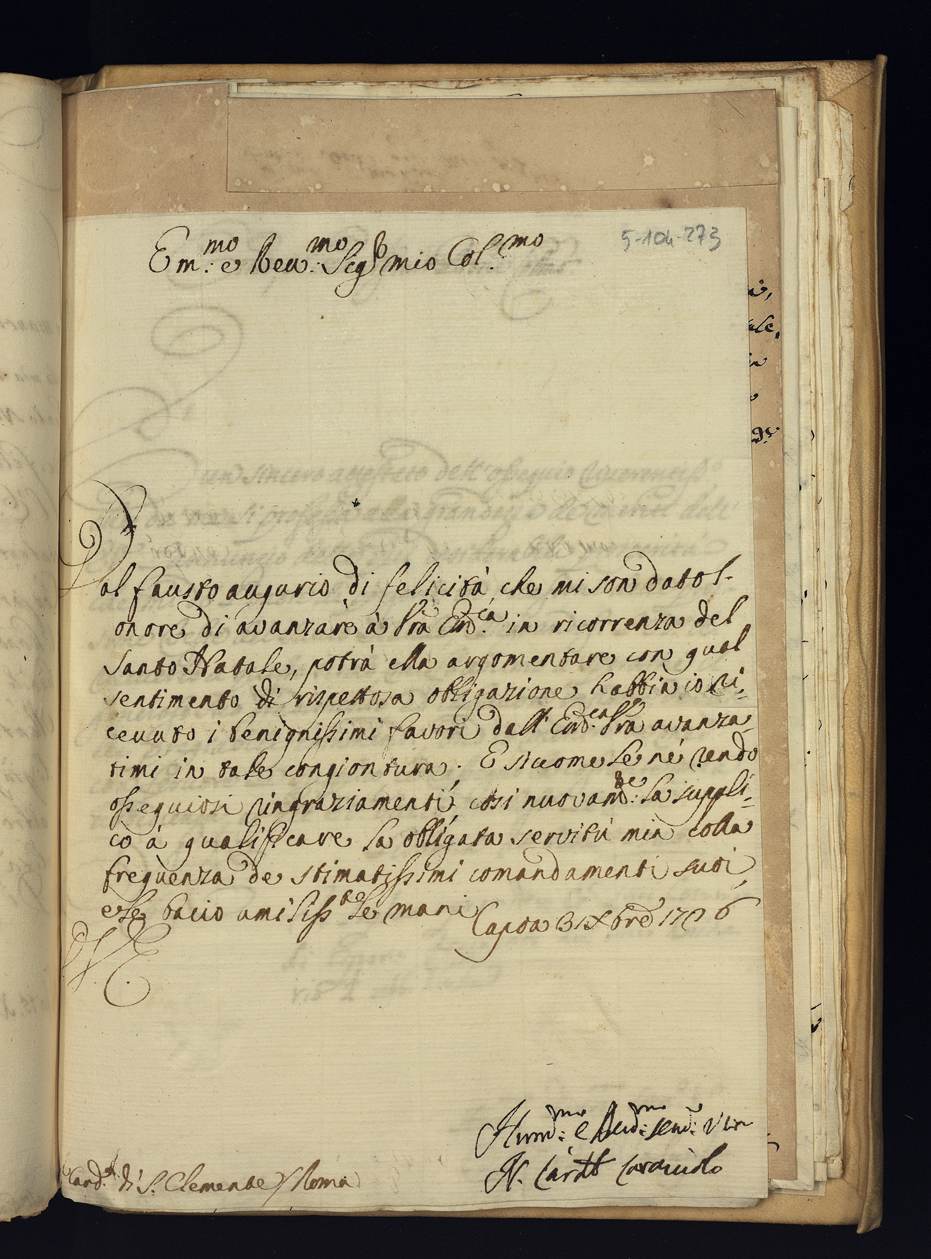 5-104-273
Em.mo e Reu.mo Sig.r mio Col.mo
Dal fausto augurio di felicità, che mi son dato l-
onore di avanzare à Vra Em.za in ricorrenza del
Santo Natale, potrà ella argomentare con qual
sentimento di rispettosa obligazione habbia io ri-
ceuuto i benignissimi fauori dall' Em.za Vra avanza-
timi in tale congiontura; E siccome le ne rendo
ossequiosi ringraziamenti, così nuovam.te la suppli-
co à qualificare la obligata servitù mia colla
freque​nza de stimatissimi comandamenti suoi,
e le bacio umiliss.te le mani Capoa 31 Xbre 1726
D V E
Hum.mo e Deu.mo seru.
N. Card. Caracciolo
Card. di S. Clemente / Roma